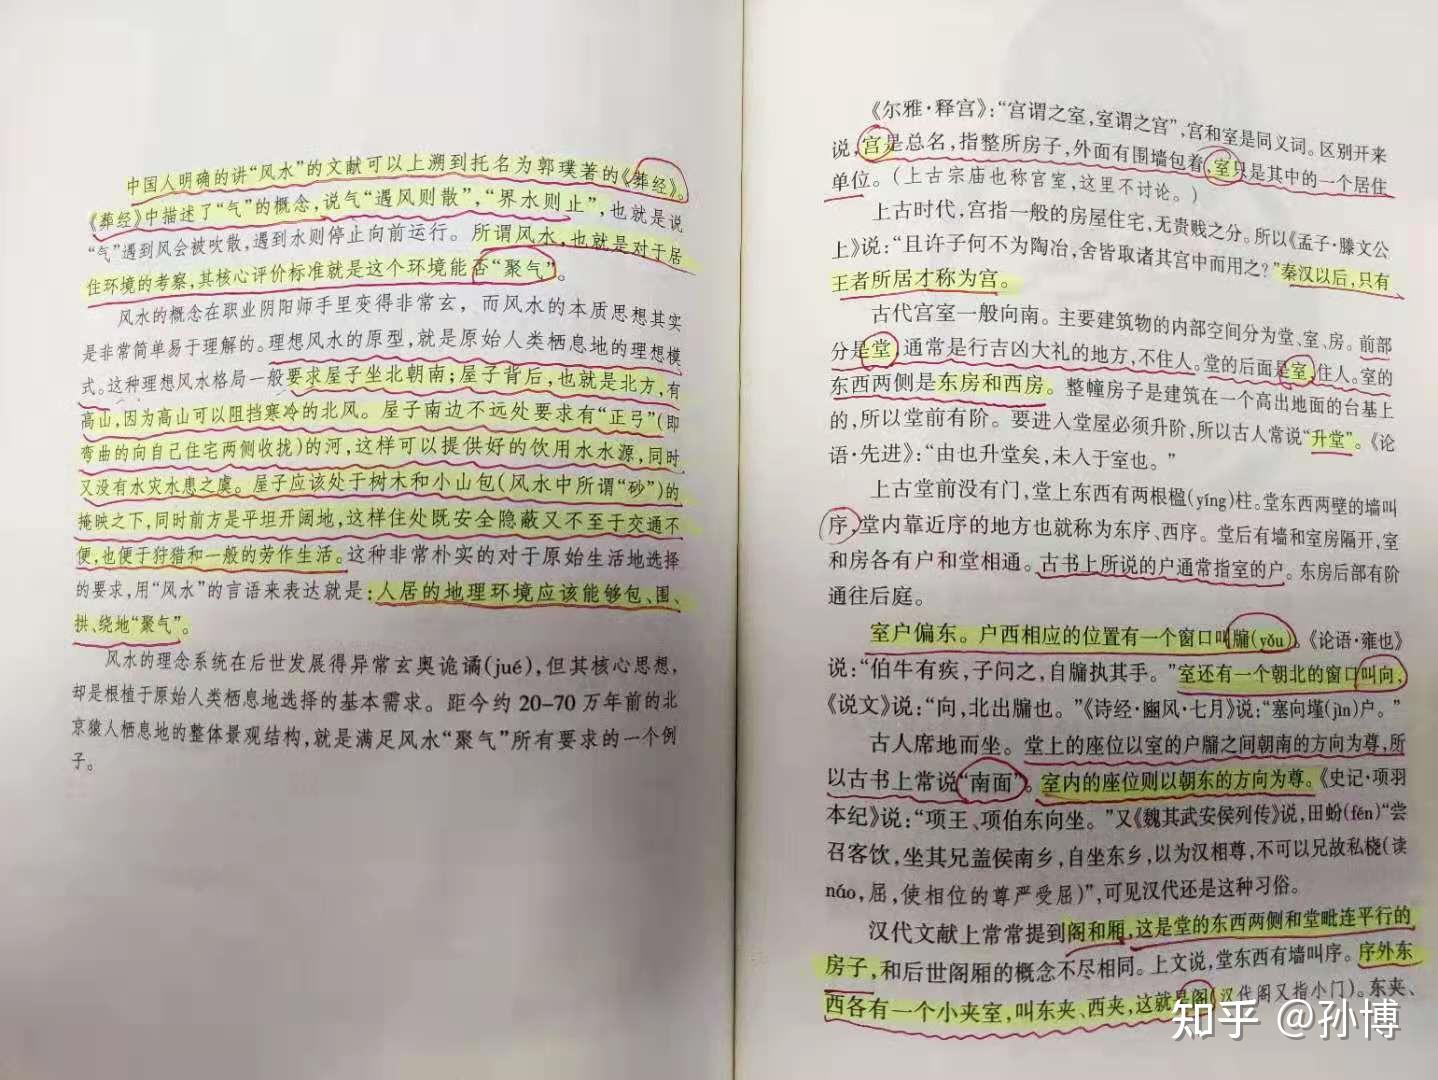 中国人明确的讲“风水”的文献可以上溯到托名为郭璞著的《葬经》。
《葬经》中描述了“气”的概念，说气“遇风则散”，“界水则止”，也就是说
“气”遇到风会被吹散，遇到水则停止向前运行。所谓风水，也就是对于居
住环境的考察，其核心评价标准就是这个环境能否“聚气”。
风水的概念在职业阴阳师手里变得非常玄，而风水的本质思想其实
是非常简单易于理解的。理想风水的原型，就是原始人类栖息地的理想模
式。这种理想风水格局一般要求屋子坐北朝南；屋子背后，也就是北方，有
高山，因为高山可以阻挡寒冷的北风。屋子南边不远处要求有“正弓”（即
弯曲的向自己住宅两侧收拢）的河，这样可以提供好的饮用水水源，同时
又没有水灾水患之虞。屋子应该处于树木和小山包（风水中所谓“砂”）的
掩映之下，同时前方是平坦开阔地，这样住处既安全隐蔽又不至于交通不
便，也便于狩猎和一般的劳作生活。这种非常朴实的对于原始生活地选择
的要求，用“风水”的言语来表达就是：人居的地理环境应该能够包、围、
拱、绕地“聚气”。
风水的理念系统在后世发展得异常玄奥诡谲(jué)，但其核心思想，
却是根植于原始人类栖息地选择的基本需求。距今约 20–70 万年前的北
京猿人栖息地的整体景观结构，就是满足风水“聚气”所有要求的一个例
子。
《尔雅·释宫》：“宫谓之室，室谓之宫”，宫和室是同义词。区别开来
说，宫是总名，指整所房子，外面有围墙包着，室只是其中的一个居住
单位。（上古宗庙也称宫室，这里不讨论。）
上古时代，宫指一般的房屋住宅，无贵贱之分。所以《孟子·滕文公
上》说：“且许子何不为陶冶，舍皆取诸其宫中而用之？”秦汉以后，只有
王者所居才称为宫。
古代宫室一般向南。主要建筑物的内部空间分为堂、室、房。前部
分是堂，通常是行吉凶大礼的地方，不住人。堂的后面是室，住人。室的
东西两侧是东房和西房。整幢房子是建筑在一个高出地面的台基上
的，所以堂前有阶。要进入堂屋必须升阶，所以古人常说“升堂”。《论
语·先进》：“由也升堂矣，未入于室也。”
上古堂前没有门，堂上东西有两根楹(yíng)柱。堂东西两壁的墙叫
序，堂内靠近序的地方也就称为东序、西序。堂后有墙和室房隔开，室
和房各有户和堂相通。古书上所说的户通常指室的户。东房后部有阶
通往后庭。
室户偏东。户西相应的位置有一个窗口叫牖(yǒu)。《论语·雍也》
说：“伯牛有疾，子问之，自牖执其手。”室还有一个朝北的窗口叫向，
《说文》说：“向，北出牖也。”《诗经·豳风·七月》说：“塞向墐(jìn)户。”
古人席地而坐。堂上的座位以室的户牖之间朝南的方向为尊，所
以古书上常说“南面”。室内的座位则以朝东的方向为尊。《史记·项羽
本纪》说：“项王、项伯东向坐。”又《魏其武安侯列传》说，田蚡(fén)“尝
召客饮，坐其兄盖侯南乡，自坐东乡，以为汉相尊，不可以兄故私桡（读
náo，屈，使相位的尊严受屈）”，可见汉代还是这种习俗。
汉代文献上常常提到阁和厢，这是堂的东西两侧和堂毗连平行的
房子，和后世阁厢的概念不尽相同。上文说，堂东西有墙叫序。序外东
西各有一个小夹室，叫东夹、西夹，这就是阁（汉代阁又指小门）。东夹、
知乎 @孙博